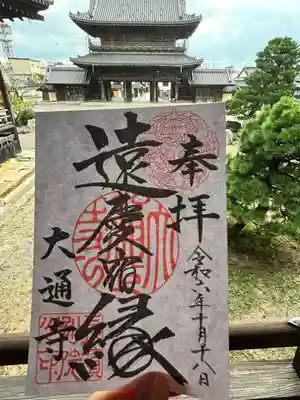 奉拝
令和六年十月十八日
遠慶宿縁
大通寺